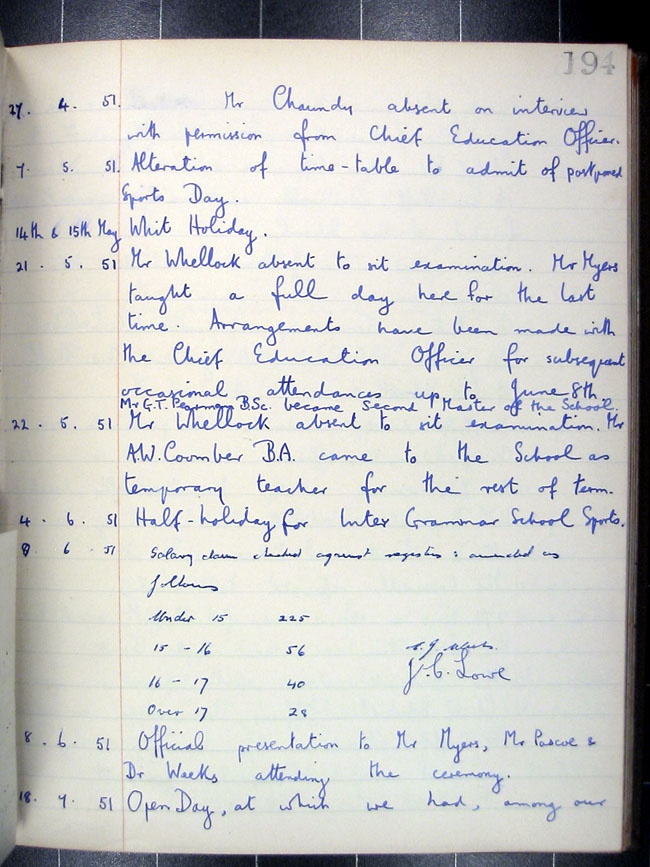 194
27. 4. 51. Mr Chaundy absent on interview
with permission from Chief Education Officer.
7. 5. 51. Alteration of time-table to admit of postponed
Sports Day.
14th & 15th May Whit Holiday.
21. 5. 51 Mr Whellock absent to sit examination. Mr Myers
taught a full day here for the last
time. Arrangements have been made with
the Chief Education Officer for subsequent
occasional attendances up to June 8th.
Mr G.T. Pearman B.Sc. became Second Master of the School.
22. 5. 51 Mr Whellock absent to sit examination. Mr
A.W. Coomber B.A. came to the School as
temporary teacher for the rest of term.
4. 6. 51 Half-holiday for Inter Grammar School Sports.
8 6 51 Salary claim checked against registers: amended as
follows
Under 15 225
15 - 16 56
J.C. Lowe
16 - 17 40
Over 17 28
8. 6. 51 Official presentation to Mr Myers, Mr Pascoe &
Dr Weeks attending the ceremony.
18. 7. 51 Open Day, at which we had, among our